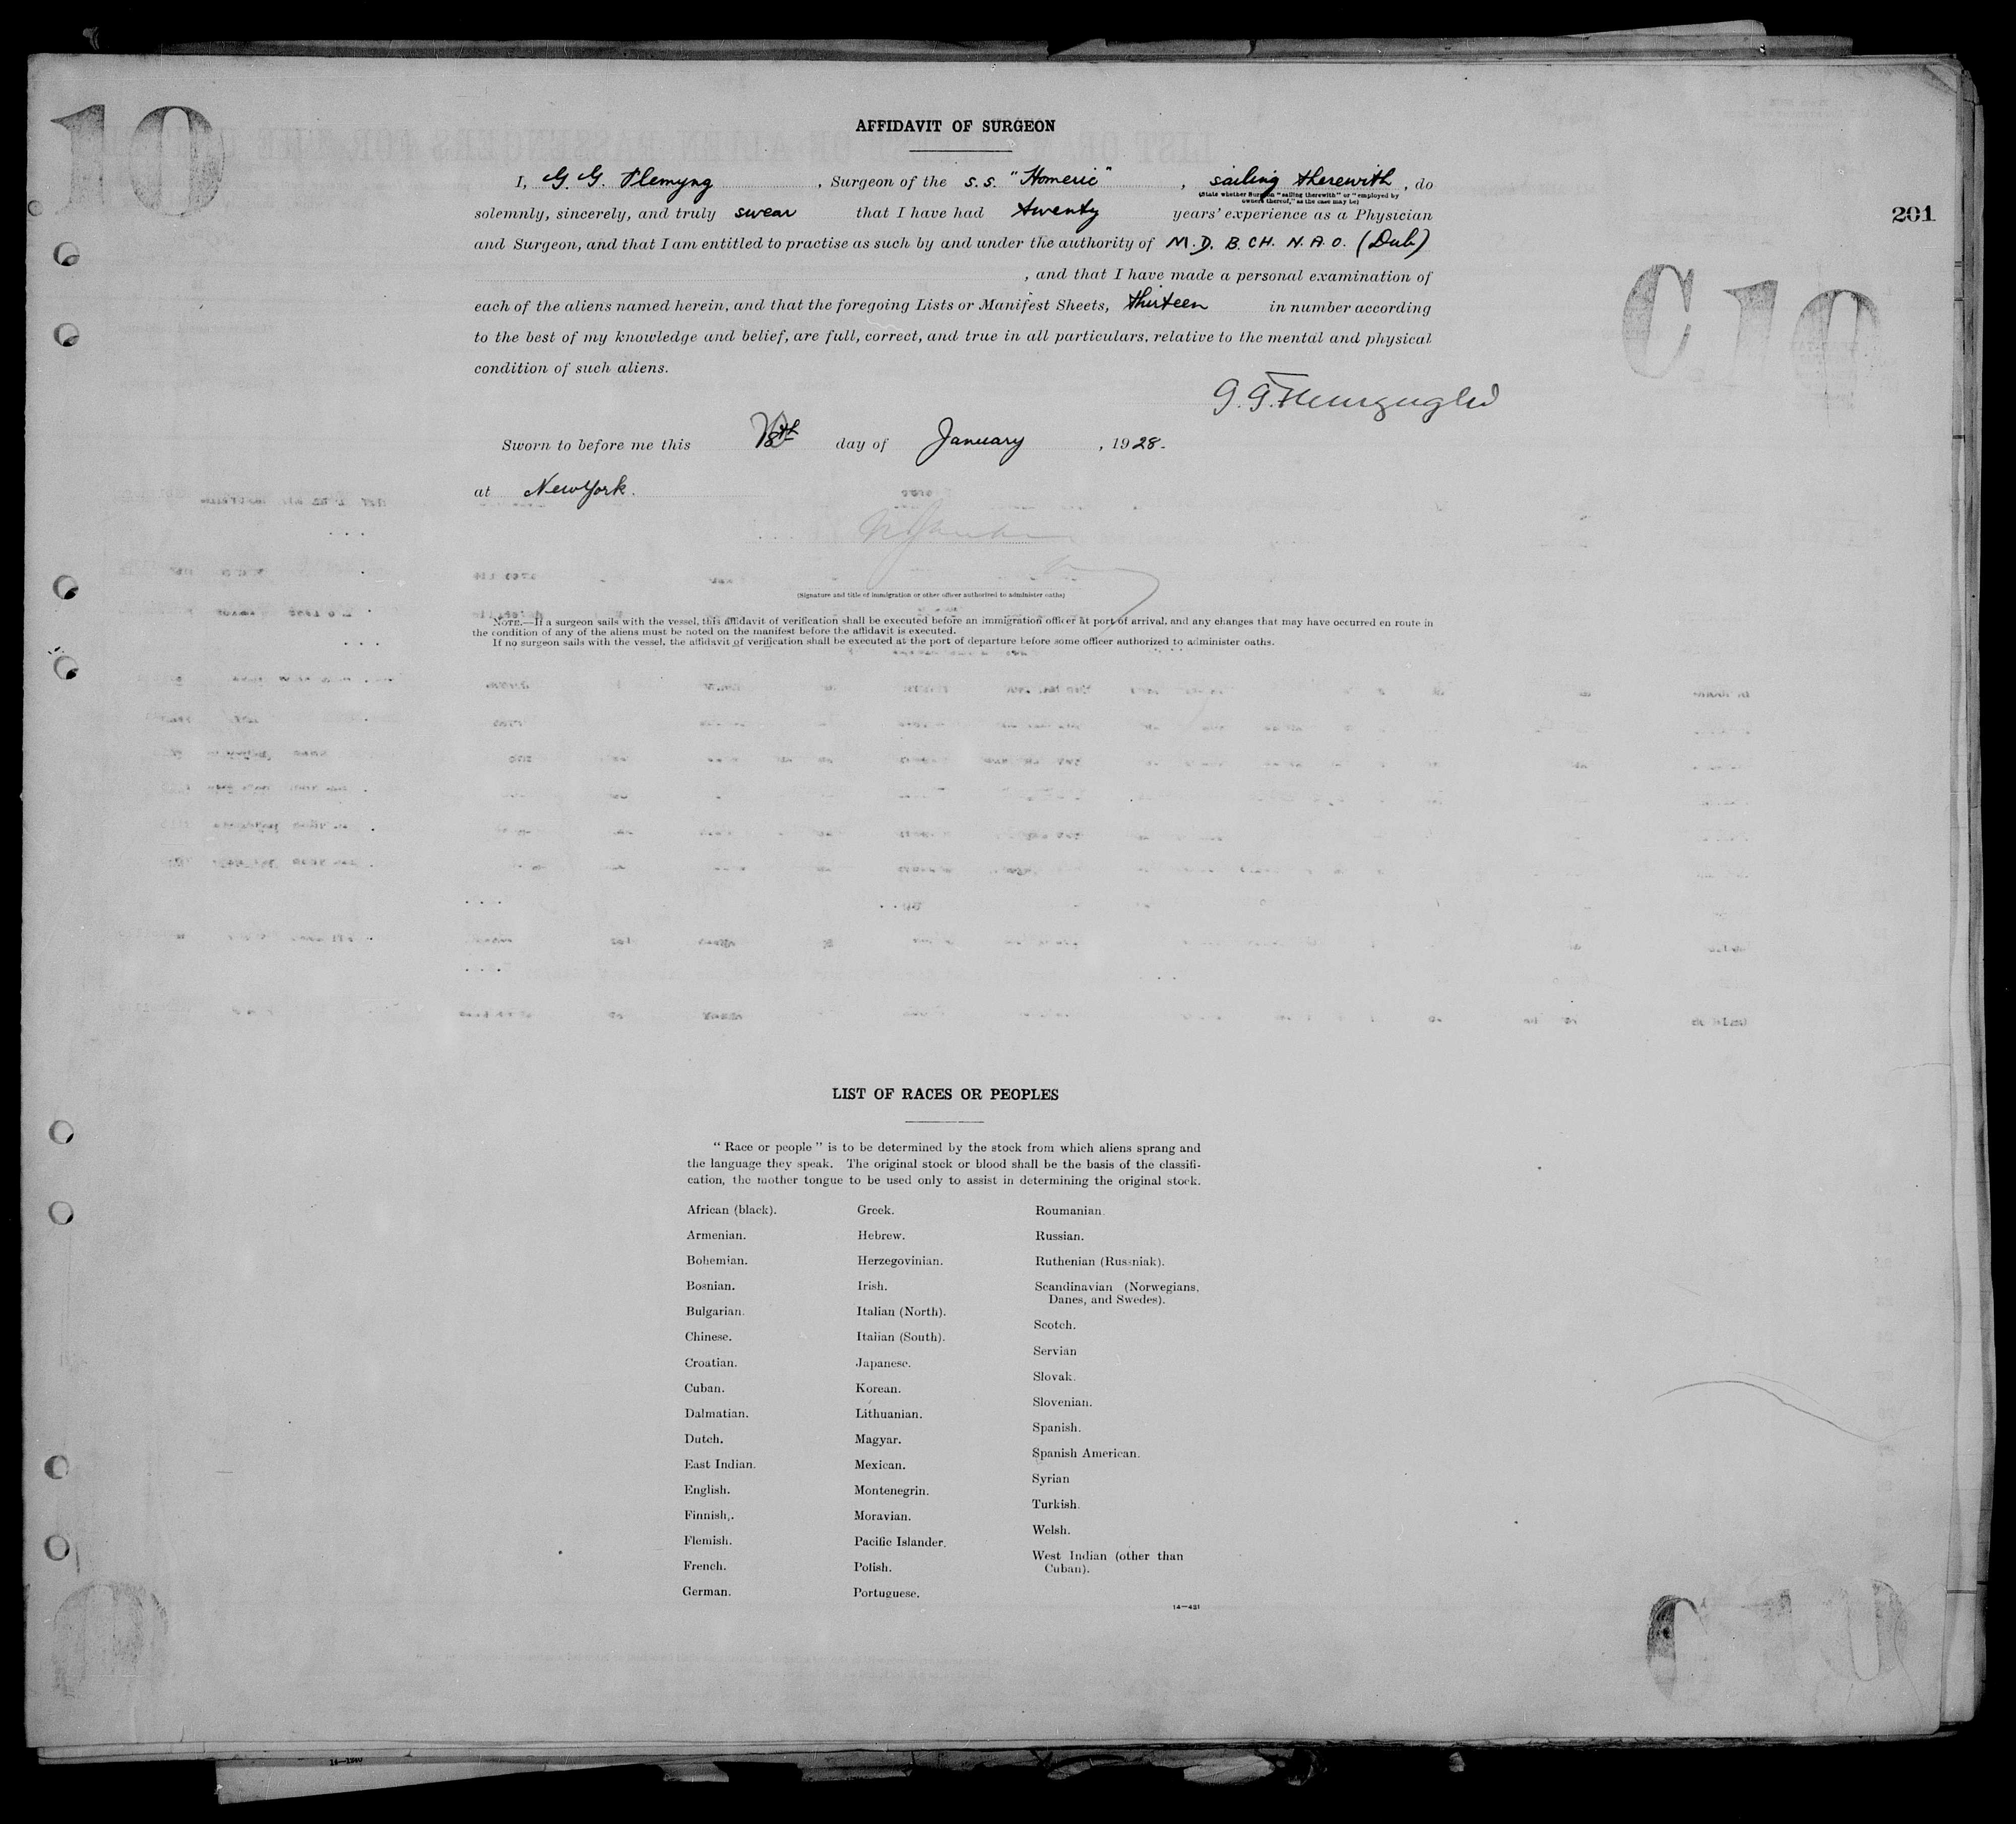 10
AFFIDAVIT OF SURGEON
I, G. G. Flemyng , Surgeon of the s.s. "Homeric" , sailing therewith , do
(State whether Surgeon "sailing therewith" or "employed by
owners thereof," as the case may be)
201
solemnly, sincerely, and truly swear that I have had twenty years' experience as a Physician
and Surgeon, and that I am entitled to practise as such by and under the authority of M.D. B.CH. N.A.O. (Dub)
, and that I have made a personal examination of
C 10
each of the aliens named herein, and that the foregoing Lists or Manifest Sheets, thirteen in number according
to the best of my knowledge and belief, are full, correct, and true in all particulars, relative to the mental and physical
condition of such aliens.
G. G. Flemyng
Sworn to before me this day of January , 1928.
at New York.
(Signature and title of immigration or other officer authorized to administer oaths)
NOTE.—If a surgeon sails with the vessel, this affidavit of verification shall be executed before an immigration officer at port of arrival, and any changes that may have occurred en route in
the condition of any of the aliens must be noted on the manifest before the affidavit is executed.
If no surgeon sails with the vessel, the affidavit of verification shall be executed at the port of departure before some officer authorized to administer oaths.
LIST OF RACES OR PEOPLES
" Race or people " is to be determined by the stock from which aliens sprang and
the language they speak. The original stock or blood shall be the basis of the classifi-
cation, the mother tongue to be used only to assist in determining the original stock.
African (black).
Armenian.
Bohemian.
Bosnian.
Bulgarian.
Chinese.
Croatian.
Cuban.
Dalmatian.
Dutch.
East Indian.
English.
Finnish,.
Flemish.
French.
German.
Greek.
Hebrew.
Herzegovinian.
Irish.
Italian (North).
Italian (South).
Japanese.
Korean.
Lithuanian.
Magyar.
Mexican.
Montenegrin.
Moravian.
Pacific Islander.
Polish.
Portuguese.
Roumanian.
Russian.
Ruthenian (Russniak).
Scandinavian (Norwegians,
Danes, and Swedes).
Scotch.
Servian
Slovak.
Slovenian.
Spanish.
Spanish American.
Syrian
Turkish.
Welsh.
West Indian (other than
Cuban).
14—431
C 10
14—1240